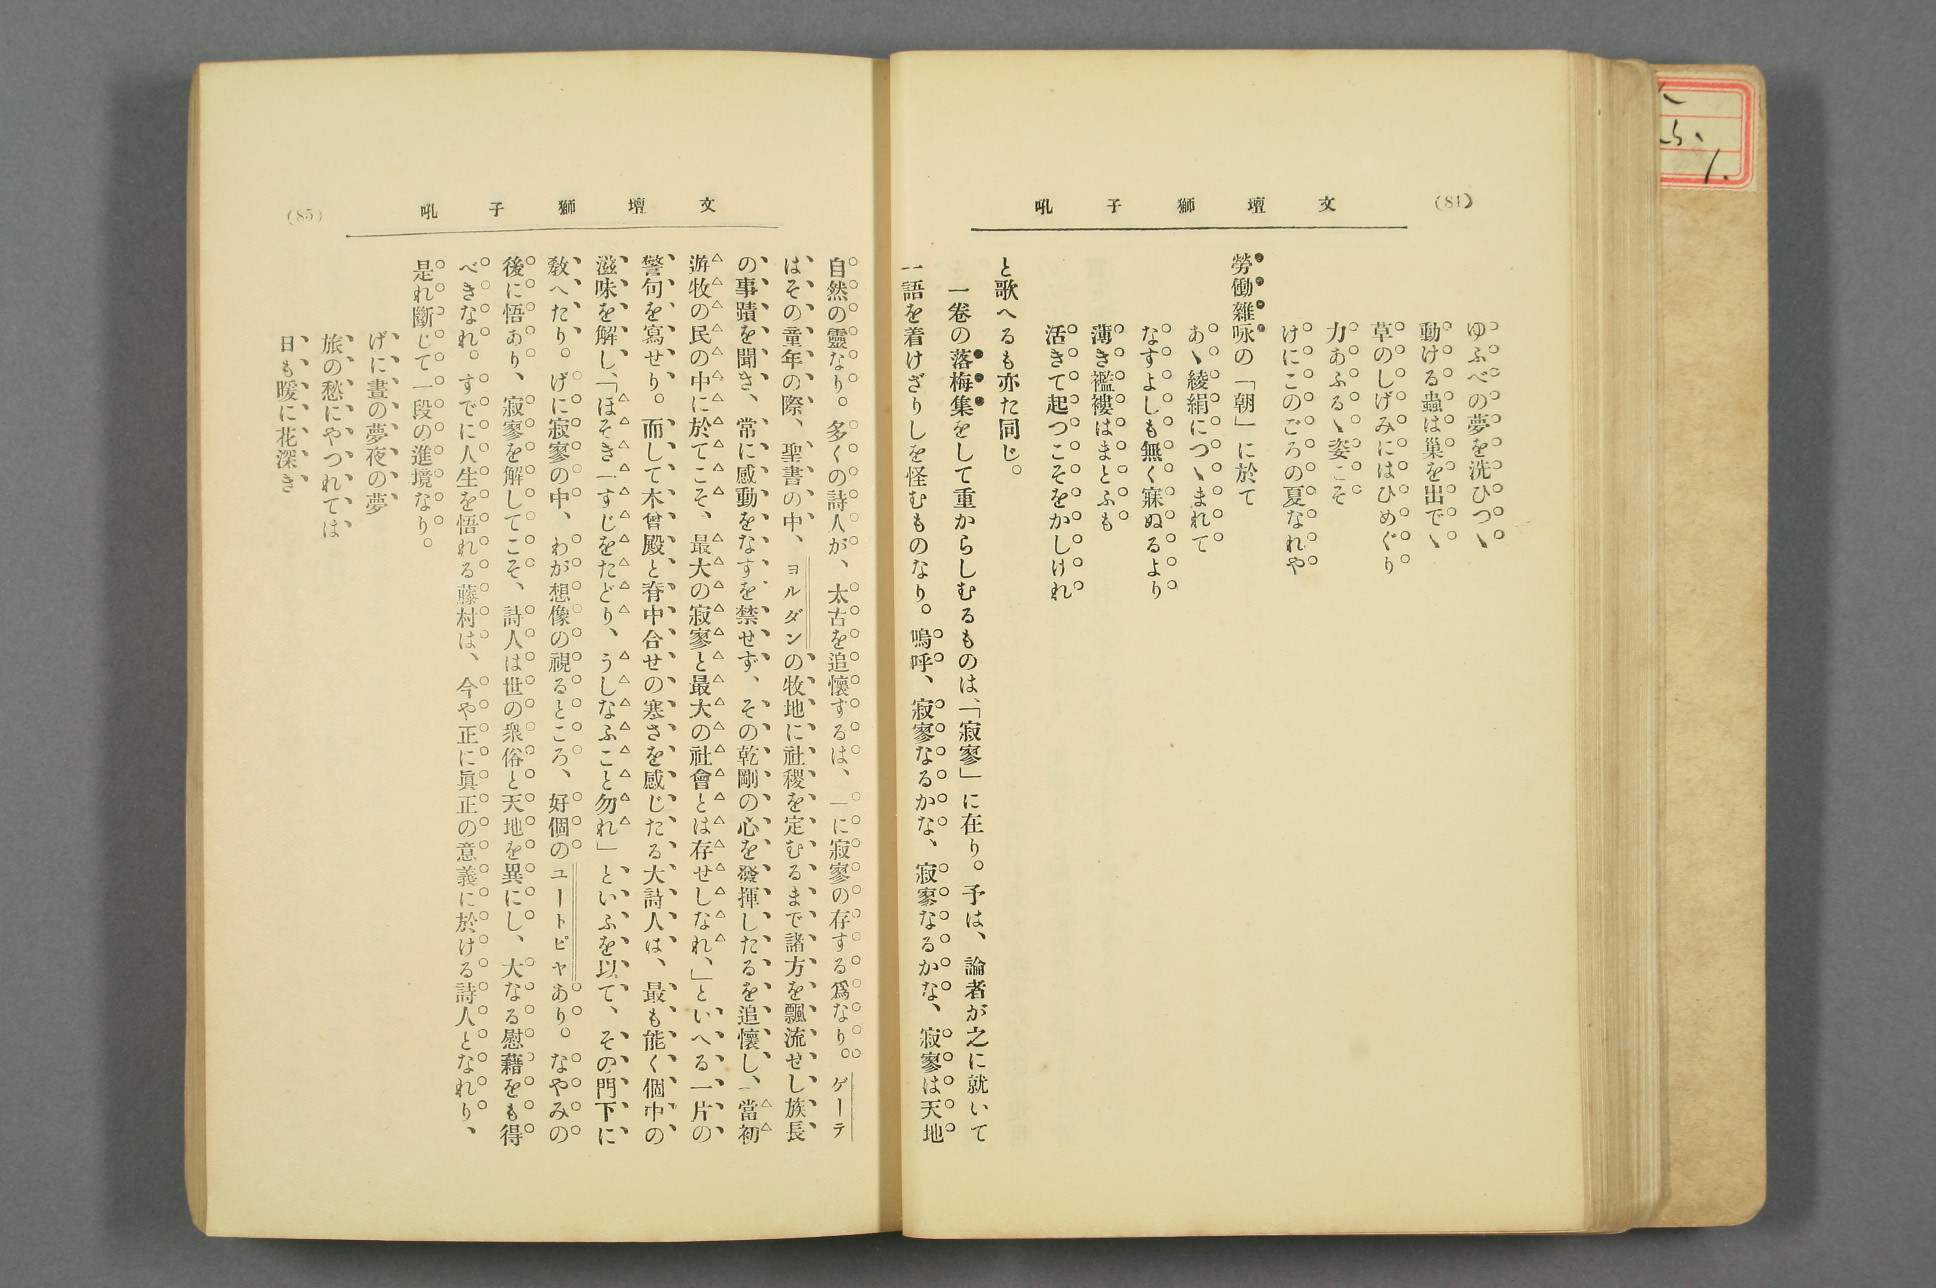 (84)
文壇獅子吼
ゆふべの夢を洗ひつゝ
動ける蟲は巣を出でゝ
草のしげみにはひめぐり
力あふるゝ姿こそ
けにこのごろの夏なれや
勞働雜咏の「朝」に於て
あゝ綾絹につゝまれて
なすよしも無く寐ぬるより
薄き襤褸はまとふも
活きて起つこそをかしけれ
と歌へるも亦た同じ。
一卷の落梅集をして重からしむるものは、「寂寥」に在り。予は、論者が之に就いて
一語を着けざりしを怪むものなり。嗚呼、寂寥なるかな、寂寥なるかな、寂寥は天地
(85)
文壇獅子吼
自然の靈なり。多くの詩人が、太古を追懷するは、一に寂寥の存する爲なり。ゲーテ
はその童年の際、聖書の中、ヨルダンの牧地に社稷を定むるまで諸方を飄流せし族長
の事蹟を聞き、常に感動をなすを禁せず、その乾剛の心を發揮したるを追懷し、「當初
游牧の民の中に於てこそ、最大の寂寥と最大の社會とは存せしなれ、」といへる一片の
警句を寫せり。而して木曾殿と脊中合せの寒さを感じたる大詩人は、最も能く個中の
滋味を解し、「ほそき一すじをたどり、うしなふこと勿れ」といふを以て、その門下に
敎へたり。げに寂寥の中、わが想像の視るところ、好個のユートピヤあり。なやみの
後に悟あり、寂寥を解してこそ、詩人は世の衆俗と天地を異にし、大なる慰藉をも得
べきなれ。すでに人生を悟れる藤村は、今や正に眞正の意義に於ける詩人となれり、
是れ斷じて一段の進境なり。
げに晝の夢夜の夢
旅の愁にやつれては
日も暖に花深き